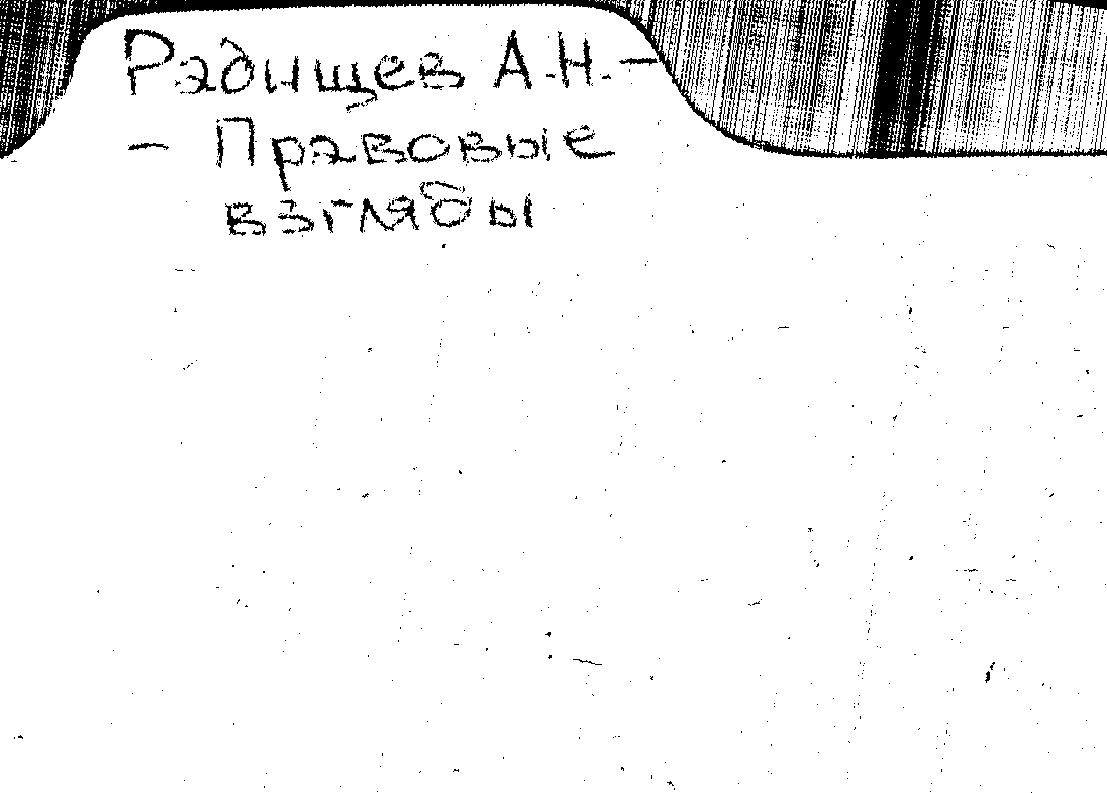 Радищев А.Н. -
- Правовые
взгляды